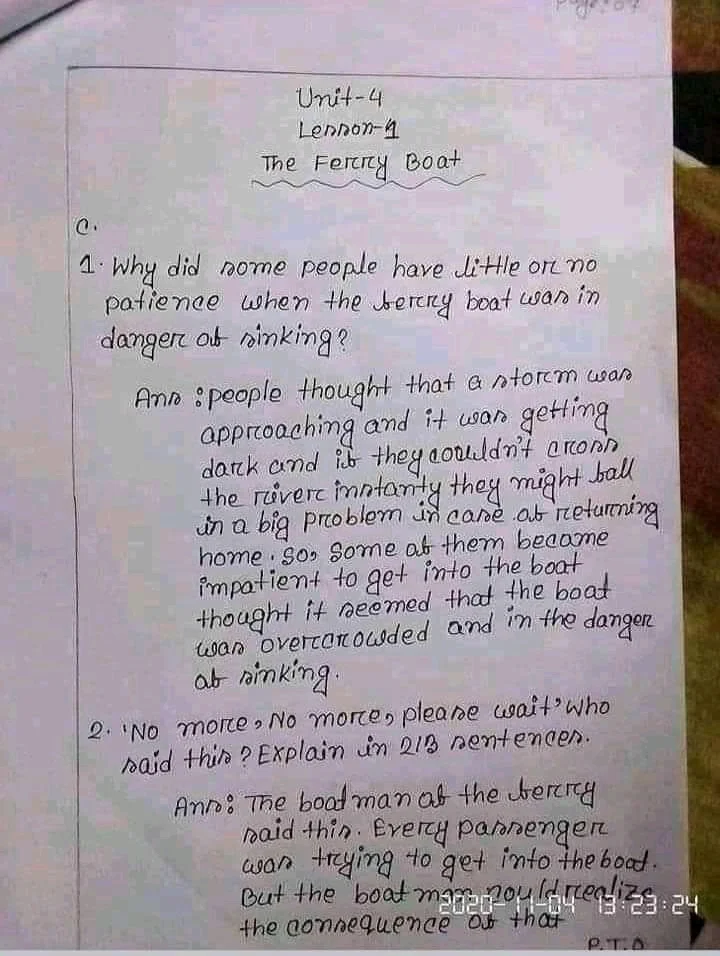 Page: 07
Unit-4
Lesson-1
The Ferry Boat
C.
1. Why did some people have little or no
patience when the ferry boat was in
danger of sinking?
Ans : people thought that a storm was
approaching and it was getting
dark and if they couldn't cross
the river instanty they might fall
in a big problem in case of returning
home. So, some of them became
impatient to get into the boat
thought it seemed that the boat
was overcrowded and in the danger
of sinking.
2. 'No more, No more, please wait' Who
said this? Explain in 2/3 sentences.
Ans: The boatman of the ferry
said this. Every passenger
was trying to get into the boat.
But the boat man could realize
the consequence of that
2020-11-04 13:23:24
P.T.O